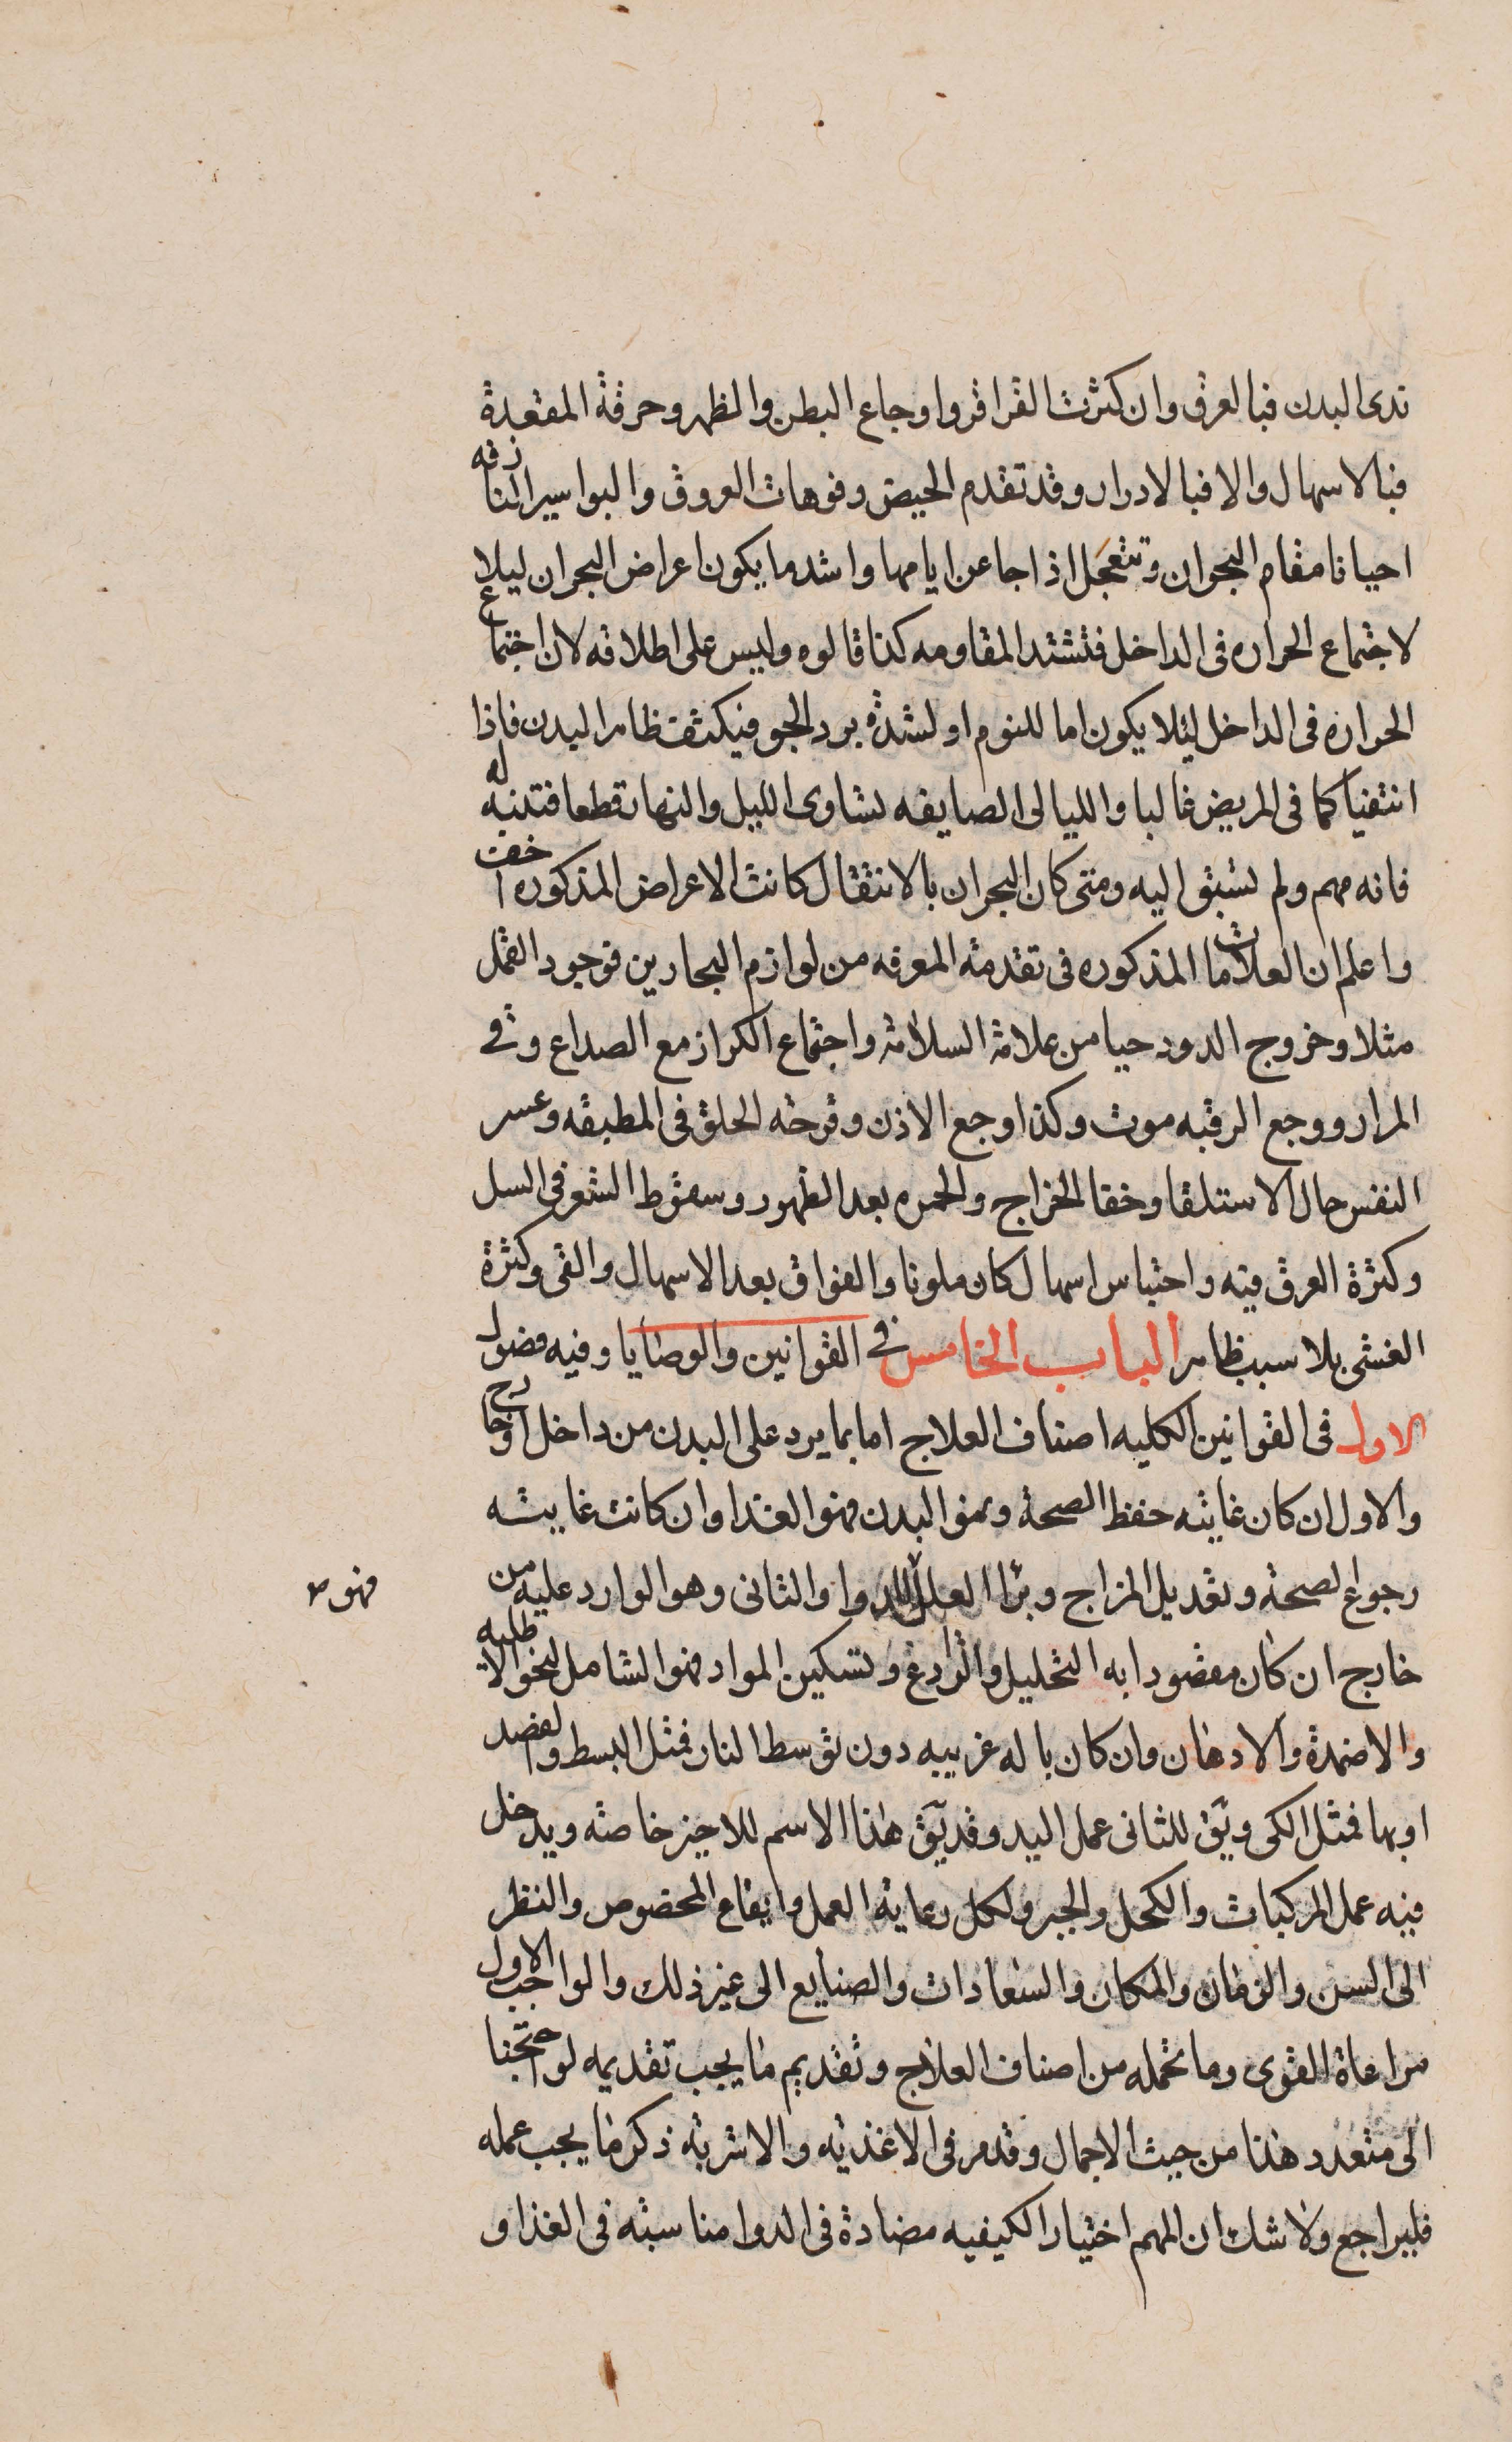 ندى البدن فبالعرق وان كثرت القراقر واوجاع البطن والظهر وحرقة المقعدة
فبالاسهال والا فبالادرار وقد تقدم الحيض وفوهات العروق والبواسير النازفه
احيانا مقام البحران وتتعجل اذا جا عن ايامها واشد ما يكون اعراض البحران ليلا
لاجتماع الحراره فى الداخل فتشتد المقاومه كذا قالوه وليس على اطلاقه لان اجتماع
الحراره فى الداخل ليلا يكون اما للنوم او لشدة برد الجو فيكثف ظاهر البدن فاذا
انتفيا كما فى المريض غالبا والليالى الصايفه تساوى الليل والنهار قطعا فتنبه له
فانه مهم ولم نسبق اليه ومتى كان البحران بالانتقال كانت الاعراض المذكوره اخف
واعلم ان العلامات المذكوره فى تقدمة المعرفه من لوازم البحارين فوجود القمل
مثلا وخروج الدود حيا من علامة السلامة واجتماع الكزاز مع الصداع وقى
المرار ووجع الرقبه موت وكذا وجع الاذن وقرحة الحلق فى المطبقه وعسر
النفس حال الاستلقا وخفا الخراج والحمره بعد الظهور وسقوط الشعر فى السل
وكثرة العرق فيه واحتباس اسهال كان ملونا والفواق بعد الاسهال والقى وكثرة
الغشى بلا سبب ظاهر الباب الخامس فى القوانين والوصايا وفيه فصول
الاول فى القوانين الكليه اصناف العلاج اما بما يرد على البدن من داخل او خارج
والاول ان كان غايته حفظ الصحة ونمو البدن فهو الغذا وان كانت غايته
رجوع الصحة وتعديل المزاج وبرا العلل فالدوا والثانى وهو الوارد عليه من
فهو ص
خارج ان كان مقصودا به التحليل والرادع وتسكين المواد فهو الشامل لنحو الاطليه
والاضمدة والادهان وان كان باله غريبه دون توسط النار فمثل البسط والفصد
او بها فمثل الكى ويق للثانى عمل اليد وقد يق هذا الاسم للاخير خاصة ويدخل
فيه عمل المركبات والكحل والجبر ولكل رعاية العمل وايقاع المخصوص والنظر
الى السن والزمان والمكان والسعادات والصنايع الى غير ذلك والواجب الاول
مراعاة القوى وما تحمله من اصناف العلاج وتقديم ما يجب تقديمه لو احتجنا
الى متعدد هذا من حيث الاجمال وقد مر فى الاغذيه والاشربة ذكر ما يجب عمله
فليراجع ولا شك ان المهم اختيار الكيفيه مضادة فى الدوا مناسبة فى الغذا و